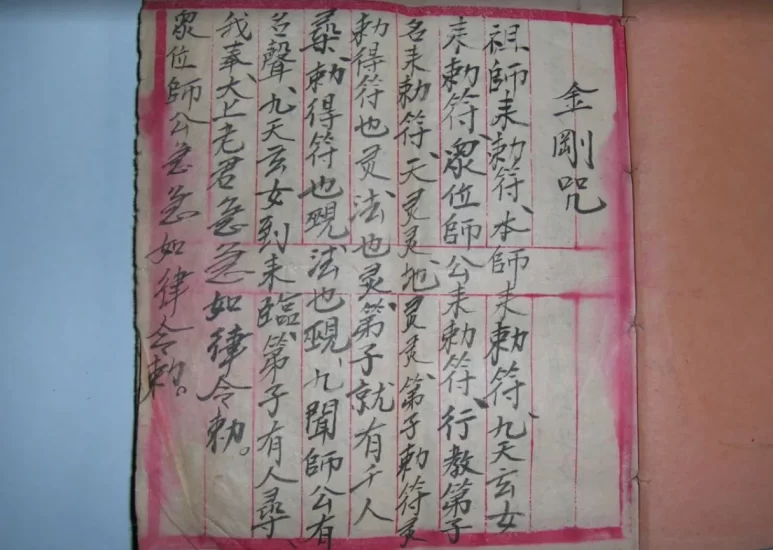 金剛咒
祖師来勅符、本師来勅符、九天玄女
来勅符、眾位師公来勅符、行教第子
名来勅符、天灵灵地灵灵、第子勅符灵
勅得符也灵法也灵、第子就有千人
尋、勅得符也現、法也現、九聞師公有
名聲、九天玄女到来臨、第子有人尋
我奉、大上老君急急如律令勅。
眾位師公急急如律令勅。